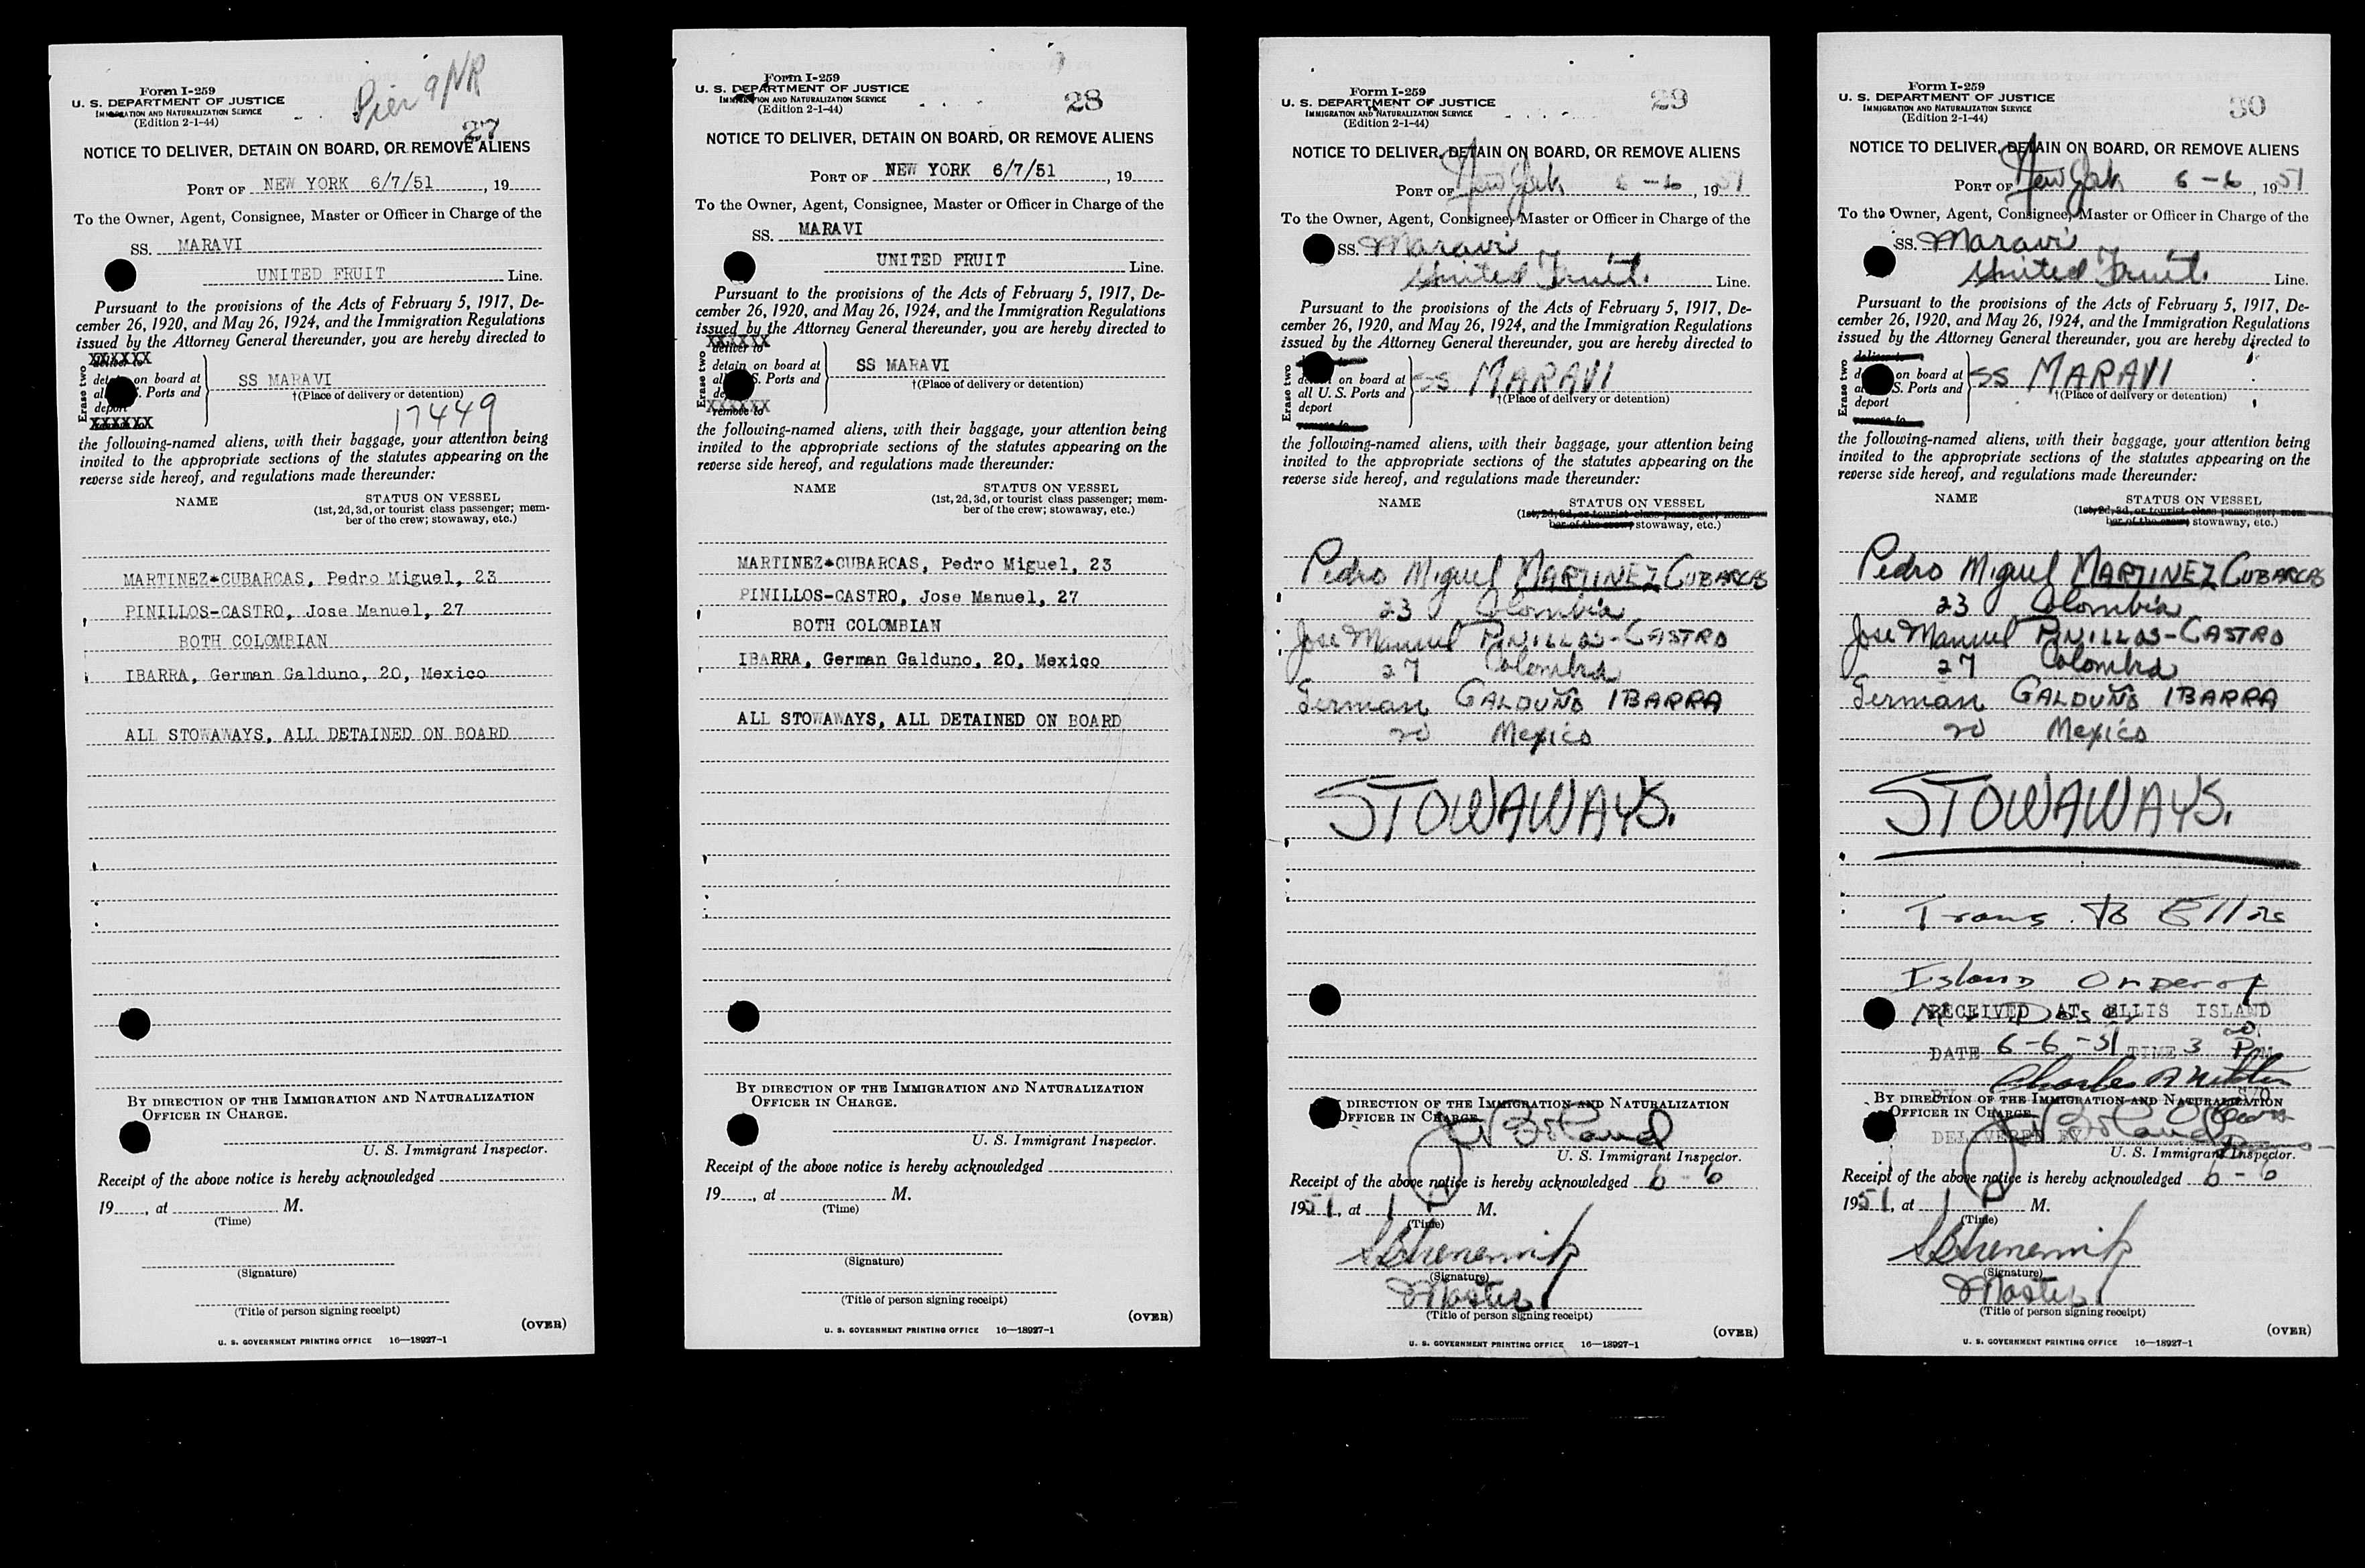 Form I-259
U. S. DEPARTMENT OF JUSTICE
IMMIGRATION AND NATURALIZATION SERVICE
(Edition 2-1-44)
Pier 9 NR
27
NOTICE TO DELIVER, DETAIN ON BOARD, OR REMOVE ALIENS
PORT OF NEW YORK 6/7/51, 19
To the Owner, Agent, Consignee, Master or Officer in Charge of the
SS. MARAVI
UNITED FRUIT Line.
Pursuant to the provisions of the Acts of February 5, 1917, De-
cember 26, 1920, and May 26, 1924, and the Immigration Regulations
issued by the Attorney General thereunder, you are hereby directed to
XXXXXX
Erase two
on board at
S. Ports and
deport
XXXXXX
SS MARAVI
†(Place of delivery or detention)
17449
the following-named aliens, with their baggage, your attention being
invited to the appropriate sections of the statutes appearing on the
reverse side hereof, and regulations made thereunder:
NAME
STATUS ON VESSEL
(1st, 2d, 3d, or tourist class passenger; mem-
ber of the crew; stowaway, etc.)
MARTINEZ*CUBARCAS, Pedro Miguel, 23
PINILLOS-CASTRO, Jose Manuel, 27
BOTH COLOMBIAN
IBARRA, German Galduno, 20, Mexico
ALL STOWAWAYS, ALL DETAINED ON BOARD
BY DIRECTION OF THE IMMIGRATION AND NATURALIZATION
OFFICER IN CHARGE.
U. S. Immigrant Inspector.
Receipt of the above notice is hereby acknowledged
19, at M.
(Time)
(Signature)
(Title of person signing receipt)
(OVER)
U. S. GOVERNMENT PRINTING OFFICE 16—18927-1
Form I-259
U. S. DEPARTMENT OF JUSTICE
IMMIGRATION AND NATURALIZATION SERVICE
(Edition 2-1-44)
28
NOTICE TO DELIVER, DETAIN ON BOARD, OR REMOVE ALIENS
PORT OF NEW YORK 6/7/51, 19
To the Owner, Agent, Consignee, Master or Officer in Charge of the
SS. MARAVI
UNITED FRUIT Line.
Pursuant to the provisions of the Acts of February 5, 1917, De-
cember 26, 1920, and May 26, 1924, and the Immigration Regulations
issued by the Attorney General thereunder, you are hereby directed to
XXXXXX
Erase two
deliver to
detain on board at
S. Ports and
XXXXXX
remove to
SS MARAVI
†(Place of delivery or detention)
the following-named aliens, with their baggage, your attention being
invited to the appropriate sections of the statutes appearing on the
reverse side hereof, and regulations made thereunder:
NAME
STATUS ON VESSEL
(1st, 2d, 3d, or tourist class passenger; mem-
ber of the crew; stowaway, etc.)
MARTINEZ*CUBARCAS, Pedro Miguel, 23
PINILLOS-CASTRO, Jose Manuel, 27
BOTH COLOMBIAN
IBARRA, German Galduno, 20, Mexico
ALL STOWAWAYS, ALL DETAINED ON BOARD
BY DIRECTION OF THE IMMIGRATION AND NATURALIZATION
OFFICER IN CHARGE.
U. S. Immigrant Inspector.
Receipt of the above notice is hereby acknowledged
19, at M.
(Time)
(Signature)
(Title of person signing receipt)
(OVER)
U. S. GOVERNMENT PRINTING OFFICE 16—18927-1
Form I-259
U. S. DEPARTMENT OF JUSTICE
IMMIGRATION AND NATURALIZATION SERVICE
(Edition 2-1-44)
29
NOTICE TO DELIVER, DETAIN ON BOARD, OR REMOVE ALIENS
PORT OF New York 6-6, 1951
To the Owner, Agent, Consignee, Master or Officer in Charge of the
SS. Maravi
United Fruit. Line.
Pursuant to the provisions of the Acts of February 5, 1917, De-
cember 26, 1920, and May 26, 1924, and the Immigration Regulations
issued by the Attorney General thereunder, you are hereby directed to
Erase two
on board at
all U. S. Ports and
deport
remove to
SS MARAVI
†(Place of delivery or detention)
the following-named aliens, with their baggage, your attention being
invited to the appropriate sections of the statutes appearing on the
reverse side hereof, and regulations made thereunder:
NAME
STATUS ON VESSEL
(1st, 2d, 3d, or tourist class passenger; mem-
ber of the crew; stowaway, etc.)
Pedro Miguel MARTINEZ CUBARCAS
23 Colombia
Jose Manuel PINILLOS-CASTRO
27 Colombia
German GALDUÑO IBARRA
20 Mexico
STOWAWAYS.
DIRECTION OF THE IMMIGRATION AND NATURALIZATION
OFFICER IN CHARGE.
U. S. Immigrant Inspector.
Receipt of the above notice is hereby acknowledged 6-6
1951, at 1 P M.
(Time)
(Signature)
Master
(Title of person signing receipt)
(OVER)
U. S. GOVERNMENT PRINTING OFFICE 16—18927-1
Form I-259
U. S. DEPARTMENT OF JUSTICE
IMMIGRATION AND NATURALIZATION SERVICE
(Edition 2-1-44)
30
NOTICE TO DELIVER, DETAIN ON BOARD, OR REMOVE ALIENS
PORT OF New York 6-6, 1951
To the Owner, Agent, Consignee, Master or Officer in Charge of the
SS. Maravi
United Fruit. Line.
Pursuant to the provisions of the Acts of February 5, 1917, De-
cember 26, 1920, and May 26, 1924, and the Immigration Regulations
issued by the Attorney General thereunder, you are hereby directed to
Erase two
deliver to
on board at
S. Ports and
deport
remove to
SS MARAVI
†(Place of delivery or detention)
the following-named aliens, with their baggage, your attention being
invited to the appropriate sections of the statutes appearing on the
reverse side hereof, and regulations made thereunder:
NAME
STATUS ON VESSEL
(1st, 2d, 3d, or tourist class passenger; mem-
ber of the crew; stowaway, etc.)
Pedro Miguel MARTINEZ CUBARCAS
23 Colombia
Jose Manuel PINILLOS-CASTRO
27 Colombia
German GALDUÑO IBARRA
20 Mexico
STOWAWAYS.
Trans. to Ellis
Island
RECEIVED AT ELLIS ISLAND
DATE 6-6-51 TIME 3 20 P M
Charles
BY DIRECTION OF THE IMMIGRATION AND NATURALIZATION
OFFICER IN CHARGE.
DELIVERED BY
U. S. Immigrant Inspector.
Receipt of the above notice is hereby acknowledged 6-6
1951, at 1 P M.
(Time)
(Signature)
Master
(Title of person signing receipt)
(OVER)
U. S. GOVERNMENT PRINTING OFFICE 16—18927-1